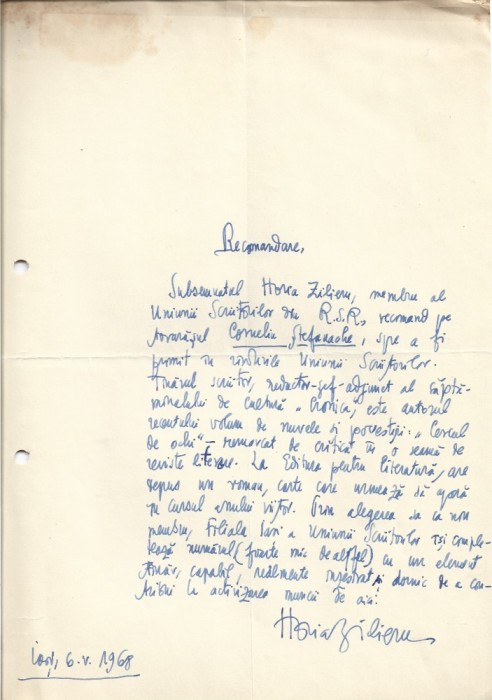 Recomandare,
Subsemnatul Horia Zilieru, membru al
Uniunii Scriitorilor din R.S.R., recomand pe
tovarășul Corneliu Ștefanache, spre a fi
primit în rîndurile Uniunii Scriitorilor.
Tînărul scriitor, redactor-șef-adjunct al săptă-
mînalului de cultură „Cronica", este autorul
recentului volum de nuvele și povestiri: „Cercul
de ochi" – remarcat de critică în o seamă de
reviste literare. La Editura pentru literatură, are
depus un roman, carte care urmează să apară
în cursul anului viitor. Prin alegerea sa ca nou
membru, Filiala Iași a Uniunii Scriitorilor își comple-
tează numărul (foarte mic de altfel) cu un element
tînăr, capabil, realmente înzestrat și dornic de a con-
tribui la activizarea muncii de aici.
Horia Zilieru
Iași, 6.V.1968